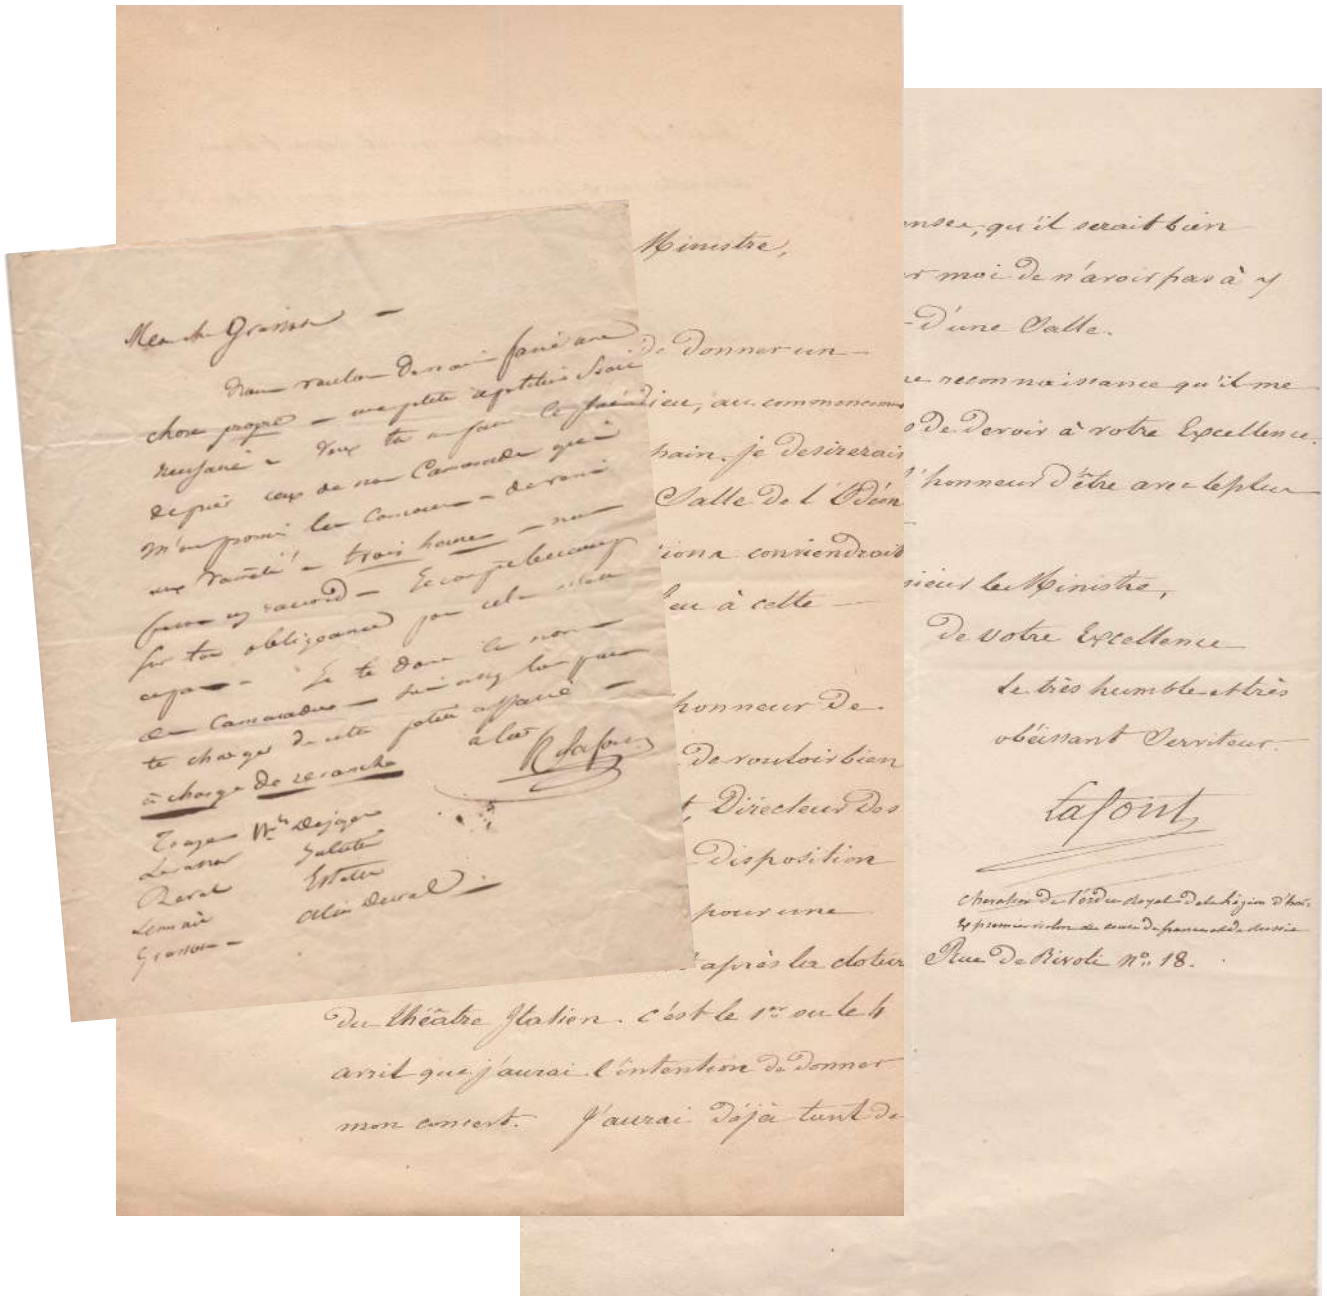 Mon ch Grassot —
nous voulons demain faire une
chose propre — une petite
depuis ceux de nos Camarades qui
m'ont promis leur concours — demain
aux variétés à trois heures — nous
ferons un raccord — Je compte beaucoup
sur ton obligeance pour cela
Je te donne les noms
des Camarades
te charger de cette petite affaire —
à charge de revanche
à toi
R Lafon
Mlles Dejazet
Levassor
Ravel Esther
Lemaire Aline Duval
Grassot —
Ministre,
de donner un —
dieu, au commencem
hain. je desirerais
Salle de l'Odéon
ions conviendrait
lieu à cette —
honneur de
de vouloir bien
t, Directeur des
disposition
pour une
après la cloture
du théâtre Italien. c'est le 1er ou le 4
avril que j'aurai l'intention de donner
mon concert. J'aurai déjà tant de
ense, qu'il serait bien
r moi de n'avoir pas à y
d'une Salle.
reconnaissance qu'il me
de devoir à votre Excellence.
l'honneur d'être avec le plus
sieur le Ministre,
de votre Excellence
le très humble et très
obéissant Serviteur.
Lafont
chevalier de l'ordre Royal de la Légion d'hon.
Ex premier violon des cours de france et de Russie
Rue de Rivoli no. 18.